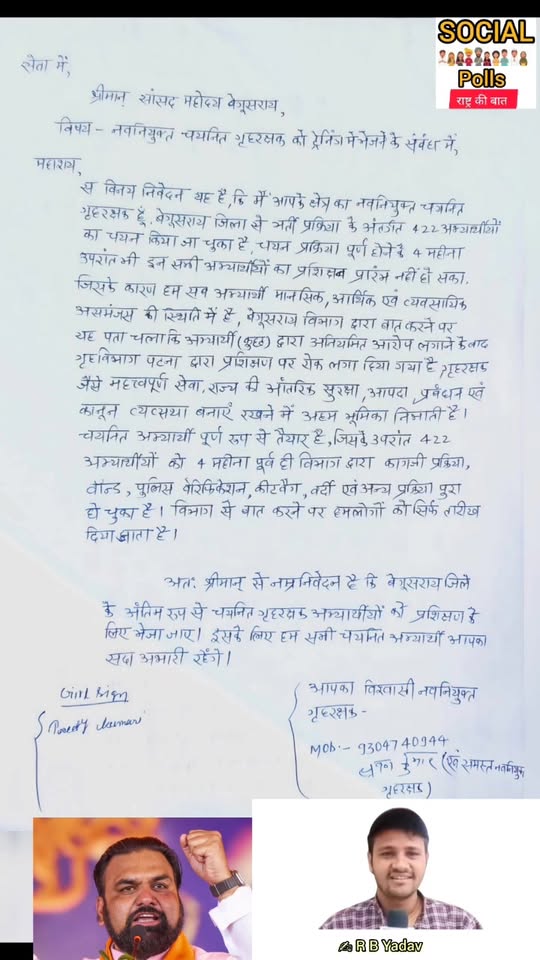 SOCIAL
Polls
राष्ट्र की बात
सेवा में,
श्रीमान् सांसद महोदय बेगूसराय,
विषय - नवनियुक्त चयनित गृहरक्षक को ट्रेनिंग में भेजने के संबंध में,
महाशय,
स विनय निवेदन यह है, कि मैं आपके क्षेत्र का नवनियुक्त चयनित
गृहरक्षक हूँ. बेगूसराय जिला से भर्ती प्रक्रिया के अंतर्गत 422 अभ्यार्थीयों
का चयन किया जा चुका है, चयन प्रक्रिया पूर्ण होने के 4 महीना
उपरांत भी इन सभी अभ्यार्थीयों का प्रशिक्षण प्रारंभ नहीं हो सका.
जिसके कारण हम सब अभ्यार्थी मानसिक, आर्थिक एवं व्यवसायिक
असमंजस की स्थिति में है, बेगूसराय विभाग द्वारा बात करने पर
यह पता चला कि अभ्यार्थी (कुछ) द्वारा अनियमित आरोप लगाने के बाद
गृहविभाग पटना द्वारा प्रशिक्षण पर रोक लगा दिया गया है, गृहरक्षक
जैसे महत्वपूर्ण सेवा, राज्य की आंतरिक सुरक्षा, आपदा, प्रबंधन एवं
कानून व्यवस्था बनाएँ रखने में अहम भूमिका निभाती है।
चयनित अभ्यार्थी पूर्ण रूप से तैयार है, जिसके उपरांत 422
अभ्यार्थीयों को 4 महीना पूर्व ही विभाग द्वारा कागजी प्रक्रिया,
बॉन्ड, पुलिस वेरिफिकेशन, कीटबैग, वर्दी एवं अन्य प्रक्रिया पुरा
हो चुका है। विभाग से बात करने पर हमलोगों को सिर्फ तारीख
दिया जाता है।
अतः श्रीमान् से नम्र निवेदन है कि बेगूसराय जिले
के अंतिम रूप से चयनित गृहरक्षक अभ्यार्थीयों को प्रशिक्षण के
लिए भेजा जाए। इसके लिए हम सभी चयनित अभ्यार्थी आपका
सदा अभारी रहेंगे।
Girl Sign
kumari
आपका विश्वासी नवनियुक्त
गृहरक्षक -
Mob:- 9304740944
कुमार (एवं समस्त नवनियुक्त
गृहरक्षक)
✍ R B Yadav